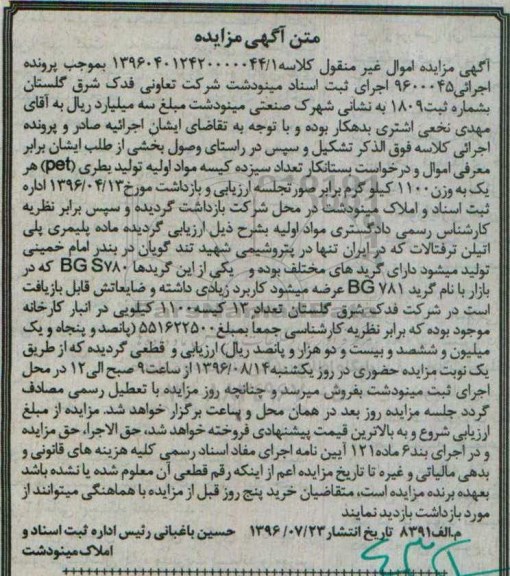 متن آگهی مزایده
آگهی مزایده اموال غیر منقول کلاسه۱۳۹۶۰۴۰۱۲۴۲۰۰۰۰۰۴۴/۱ بموجب پرونده
اجرائی۹۶۰۰۰۴۵ اجرای ثبت اسناد مینودشت شرکت تعاونی فدک شرق گلستان
بشماره ثبت۱۸۰۹ به نشانی شهرک صنعتی مینودشت مبلغ سه میلیارد ریال به آقای
مهدی نخعی اشتری بدهکار بوده و با توجه به تقاضای ایشان اجرائیه صادر و پرونده
اجرائی کلاسه فوق الذکر تشکیل و سپس در راستای وصول بخشی از طلب ایشان برابر
معرفی اموال و درخواست بستانکار تعداد سیزده کیسه مواد اولیه تولید بطری (pet) هر
یک به وزن۱۱۰۰ کیلو گرم برابر صورتجلسه ارزیابی و بازداشت مورخ۱۳۹۶/۰۴/۱۳ اداره
ثبت اسناد و املاک مینودشت در محل شرکت بازداشت گردیده و سپس برابر نظریه
کارشناس رسمی دادگستری مواد اولیه بشرح ذیل ارزیابی گردیده ماده پلیمری پلی
اتیلن ترفتالات که در ایران تنها در پتروشیمی شهید تند گویان در بندر امام خمینی
تولید میشود دارای گرید های مختلف بوده و یکی از این گریدها BG S۷۸۰ که در
بازار با نام گرید BG ۷۸۱ عرضه میشود کاربرد زیادی داشته و ضایعاتش قابل بازیافت
است در شرکت فدک شرق گلستان تعداد۱۳ کیسه۱۱۰۰ کیلویی در انبار کارخانه
موجود بوده که برابر نظریه کارشناسی جمعا بمبلغ۵۵۱۶۲۲۵۰۰ (پانصد و پنجاه و یک
میلیون و ششصد و بیست و دو هزار و پانصد ریال) ارزیابی و قطعی گردیده که از طریق
یک نوبت مزایده حضوری در روز یکشنبه۱۳۹۶/۰۸/۱۴ از ساعت۹ صبح الی۱۲ در محل
اجرای ثبت مینودشت بفروش میرسد و چنانچه روز مزایده با تعطیل رسمی مصادف
گردد جلسه مزایده روز بعد در همان محل و ساعت برگزار خواهد شد. مزایده از مبلغ
ارزیابی شروع و به بالاترین قیمت پیشنهادی فروخته خواهد شد، حق الاجرا، حق مزایده
و در اجرای بند۶ ماده۱۲۱ آیین نامه اجرای مفاد اسناد رسمی کلیه هزینه های قانونی و
بدهی مالیاتی و غیره تا تاریخ مزایده اعم از اینکه رقم قطعی آن معلوم شده یا نشده باشد
بعهده برنده مزایده است، متقاضیان خرید پنج روز قبل از مزایده با هماهنگی میتوانند از
مورد بازداشت بازدید نمایند
م.الف۸۳۹۱ تاریخ انتشار۱۳۹۶/۰۷/۲۳ حسین باغبانی رئیس اداره ثبت اسناد و
املاک مینودشت